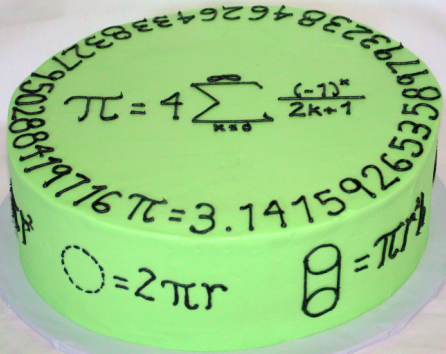 π = 4 ∞ Σ k=0 (-1)^k / 2k+1
π=3.14159265358979323846264338327950288419716
πr²
=2πr
=πr²h